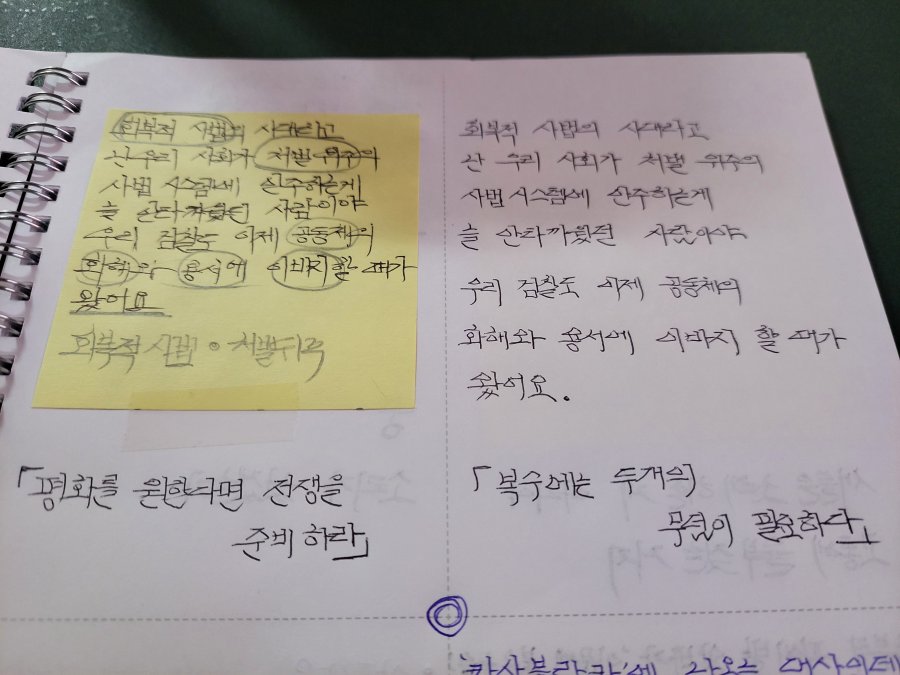 회복적 사법의 시대라고
난 우리 사회가 처벌 위주의
사법 시스템에 안주하는게
늘 안타까웠던 사람이야
우리 검찰도 이제 공동체의
화해와 용서에 이바지 할 때가
왔어요
회복적 사법 · 처벌위주
「평화를 원한다면 전쟁을
준비하라」
회복적 사법의 시대라고
난 우리 사회가 처벌 위주의
사법 시스템에 안주하는게
늘 안타까웠던 사람이야
우리 검찰도 이제 공동체의
화해와 용서에 이바지 할 때가
왔어요.
「복수에는 두개의
무덤이 필요하다」
'카사블랑카'에 나오는 대사인데